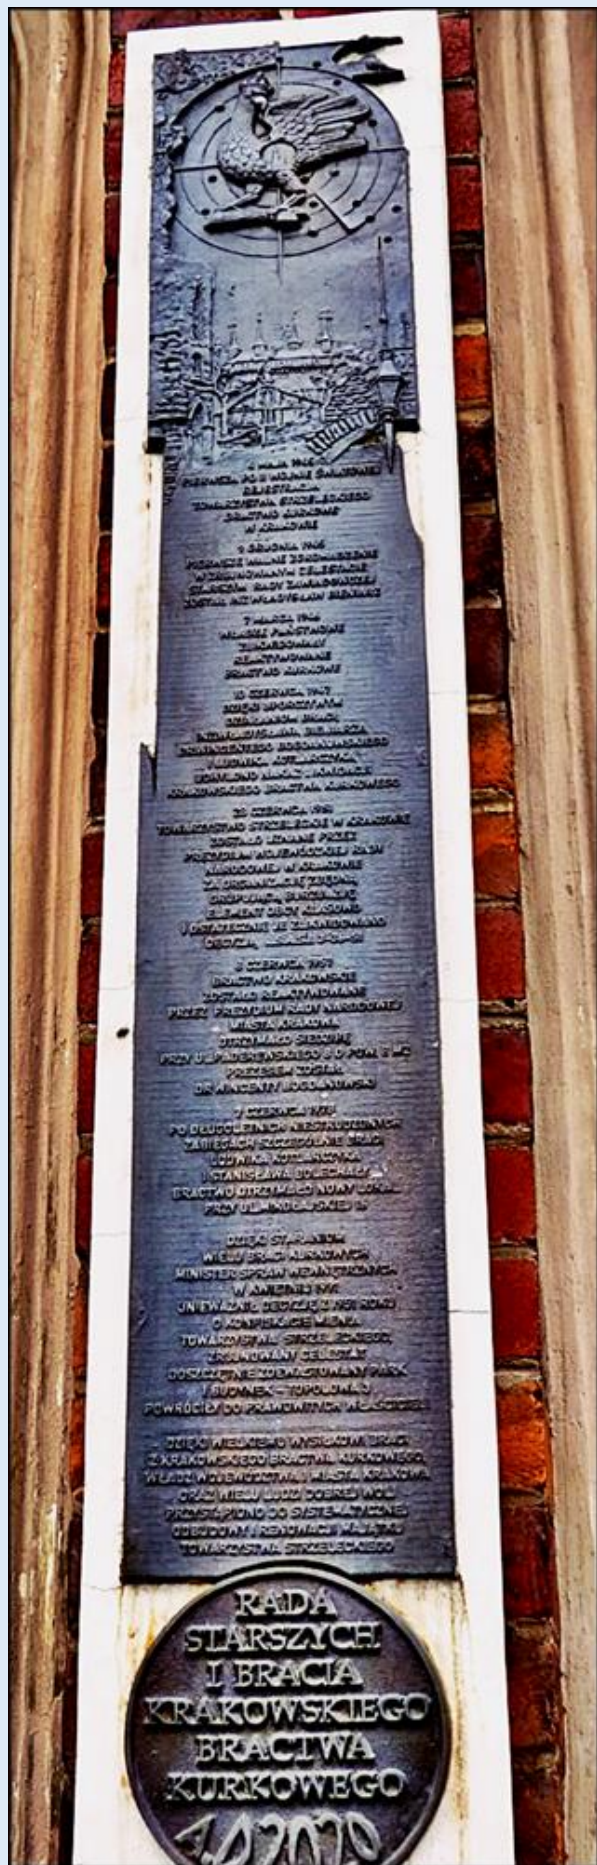 MAJA
PIERWSZA PO II WOJNIE ŚWIATOWEJ
REJESTRACJA
TOWARZYSTWA STRZELECKIEGO
BRACTWO KURKOWE
W KRAKOWIE
9 GRUDNIA 1945
PIERWSZE WALNE ZGROMADZENIE
W ZRUJNOWANYM CELESTACIE
STARSZYM RADY ZAWIADOWCZEJ
ZOSTAŁ INŻ WŁADYSŁAW BIENIARZ
7 MARCA 1946
WŁADZE PAŃSTWOWE
ZLIKWIDOWAŁY
REAKTYWOWANE
BRACTWO KURKOWE
10 CZERWCA 1947
DZIĘKI UPORCZYWYM
DZIAŁANIOM BRACI
INŻ.WŁADYSŁAWA BIENIARZA
DR.WINCENTEGO BOGDANOWSKIEGO
I LUDWIKA KOTLARCZYKA
UCHYLONO NAKAZ LIKWIDACJI
KRAKOWSKIEGO BRACTWA KURKOWEGO
23 CZERWCA 1951
TOWARZYSTWO STRZELECKIE W KRAKOWIE
ZOSTAŁO UZNANE PRZEZ
PREZYDIUM WOJEWÓDZKIEJ RADY
NARODOWEJ W KRAKOWIE
ZA ORGANIZACJĘ ZBĘDNĄ,
GRUPUJĄCĄ BURŻUAZJĘ
ELEMENT OBCY KLASOWO
I OSTATECZNIE JE ZLIKWIDOWANO
DECYZJĄ
8 CZERWCA 1957
BRACTWO KRAKOWSKIE
ZOSTAŁO REAKTYWOWANE
PRZEZ PREZYDIUM RADY NARODOWEJ
MIASTA KRAKOWA
OTRZYMAŁO SIEDZIBĘ
PRZY UL.PADEREWSKIEGO 8 O POW. 8 M2
PREZESEM ZOSTAŁ
DR WINCENTY BOGDANOWSKI
7 CZERWCA 1978
PO DŁUGOLETNICH NIESTRUDZONYCH
ZABIEGACH SZCZEGÓLNIE BRACI
LUDWIKA KOTLARCZYKA
I STANISŁAWA BOLECHAŁY
BRACTWO OTRZYMAŁO NOWY LOKAL
PRZY UL.MIKOŁAJSKIEJ
DZIĘKI STARANIOM
WIELU BRACI KURKOWYCH
MINISTER SPRAW WEWNĘTRZNYCH
W KWIETNIU 1991
UNIEWAŻNIŁ DECYZJĘ Z 1951 ROKU
O KONFISKACIE MIENIA
TOWARZYSTWA STRZELECKIEGO,
ZRUJNOWANY CELESTAT
DOSZCZĘTNIE ZDEWASTOWANY PARK
I BUDYNEK - TOPOLOWA 3
POWRÓCIŁY DO PRAWOWITYCH WŁAŚCICIELI
DZIĘKI WIELKIEMU WYSIŁKOWI BRACI
Z KRAKOWSKIEGO BRACTWA KURKOWEGO,
WŁADZ WOJEWÓDZTWA I MIASTA KRAKOWA
ORAZ WIELU LUDZI DOBREJ WOLI
PRZYSTĄPIONO DO SYSTEMATYCZNEJ
ODBUDOWY I RENOWACJI MAJĄTKU
TOWARZYSTWA STRZELECKIEGO
RADA
STARSZYCH
I BRACIA
KRAKOWSKIEGO
BRACTWA
KURKOWEGO
A.D.2020